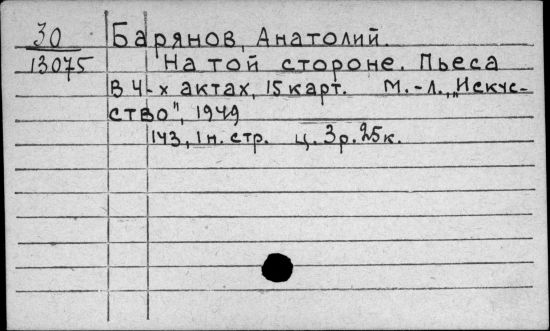 30 Барянов, Анатолий.
13075 На той стороне. Пьеса
в 4-х актах, 15 карт. М.-Л., „Искус-
ство", 1949
143, 1 н. стр. ц. 3 р. 25 к.